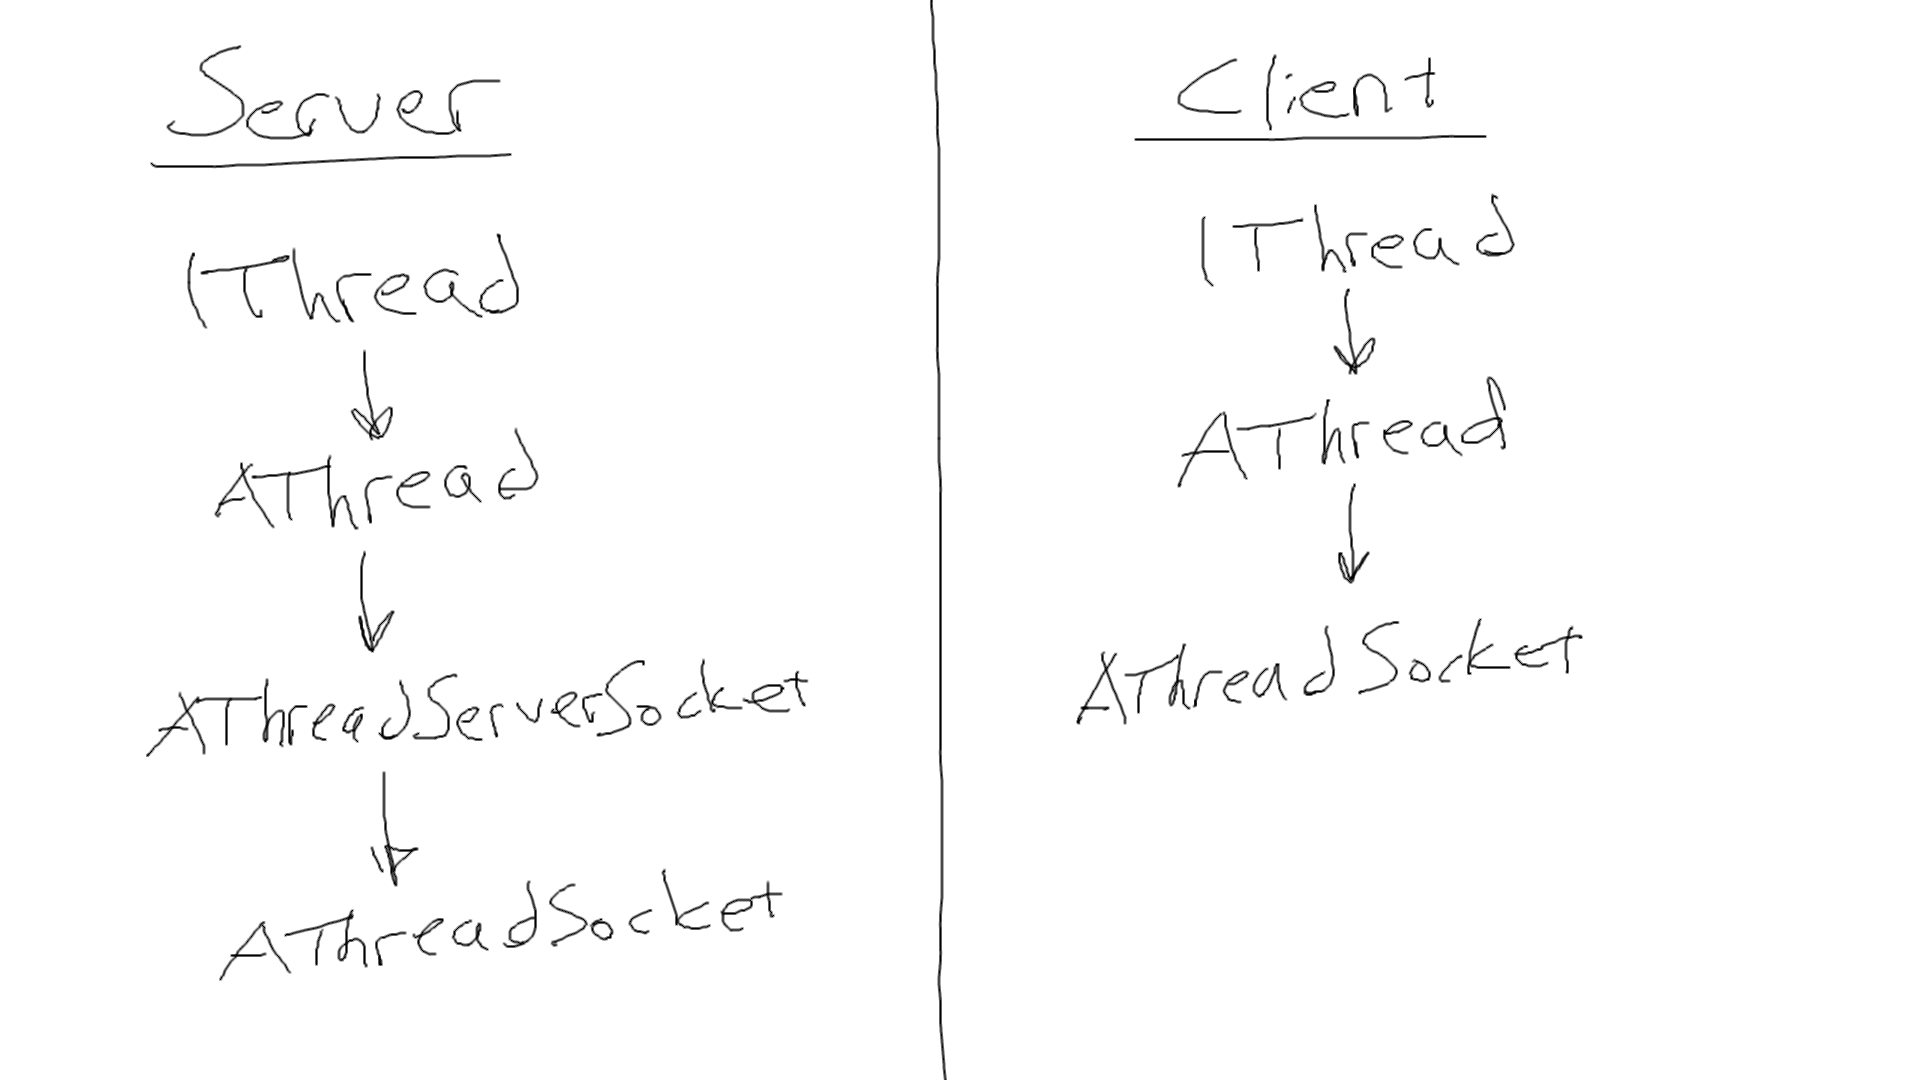 Server
IThread
AThread
AThreadServerSocket
AThreadSocket
Client
IThread
AThread
AThreadSocket